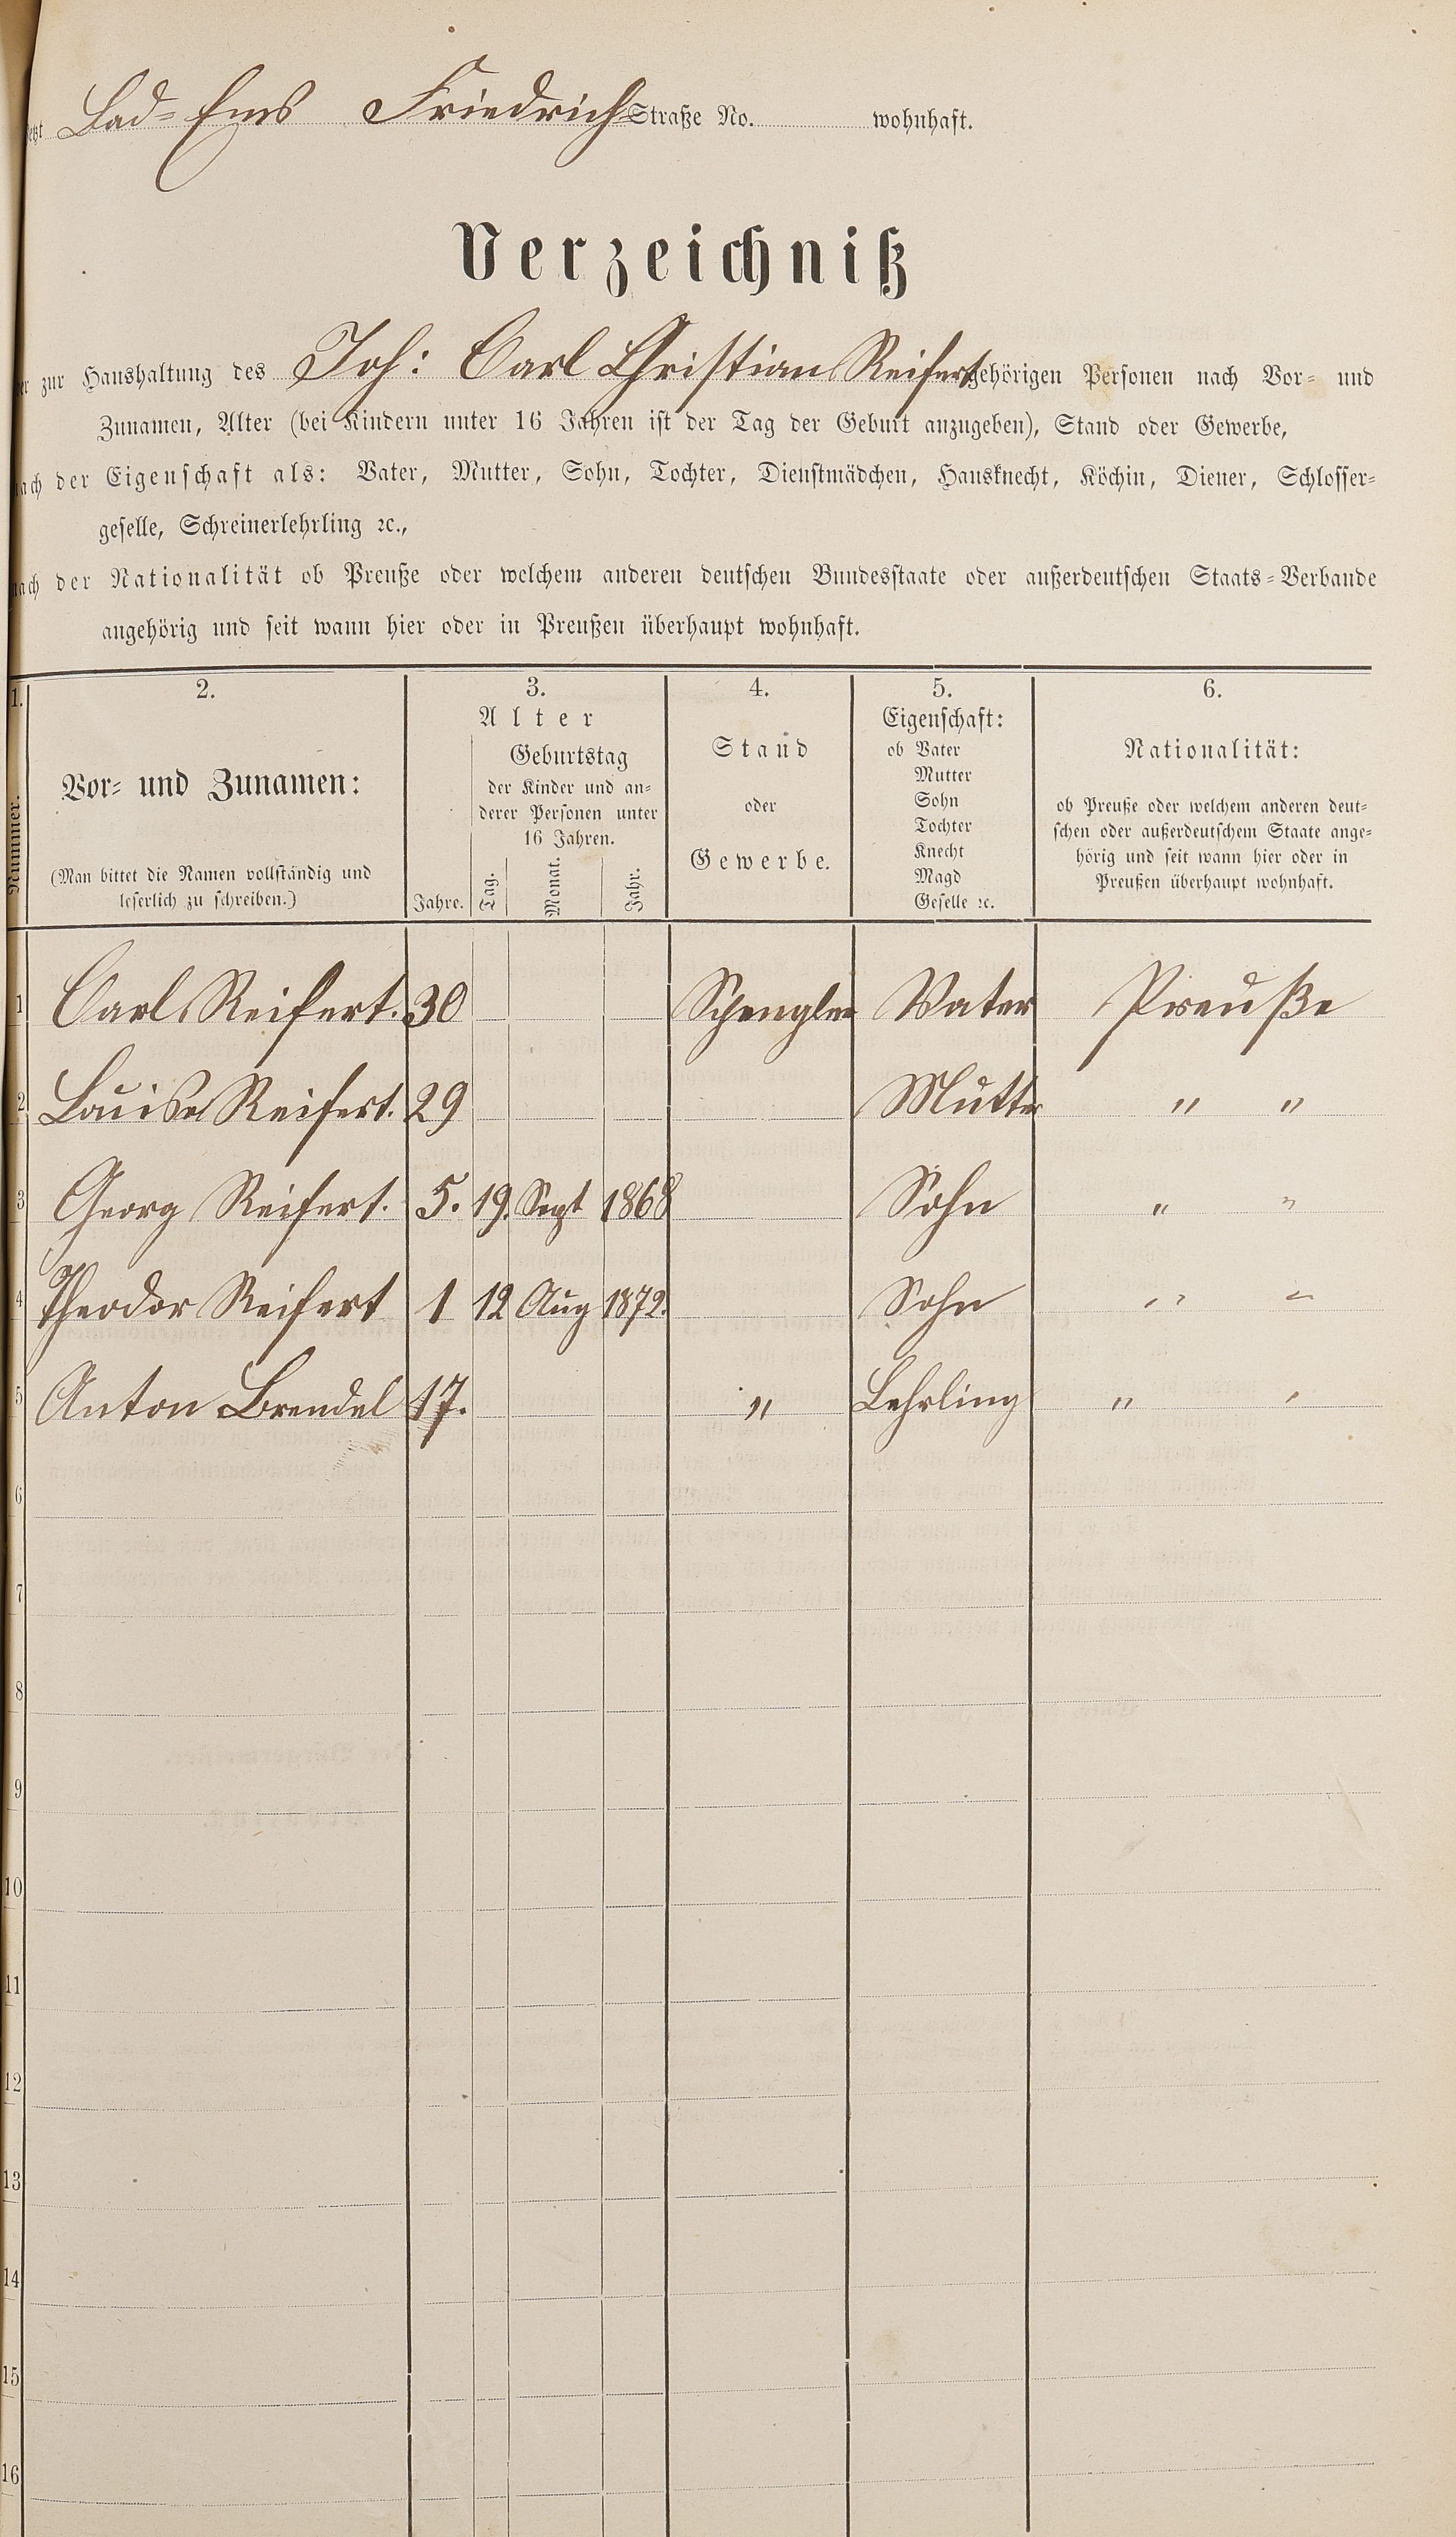 jetzt Bad-Ems Friedrich Straße No. wohnhaft.
Verzeichniß
der zur Haushaltung des Joh: Carl Christian Reifert gehörigen Personen nach Vor- und
Zunamen, Alter (bei Kindern unter 16 Jahren ist der Tag der Geburt anzugeben), Stand oder Gewerbe,
nach der Eigenschaft als: Vater, Mutter, Sohn, Tochter, Dienstmädchen, Hausknecht, Köchin, Diener, Schlosser-
geselle, Schreinerlehrling ꝛc.,
nach der Nationalität ob Preuße oder welchem anderen deutschen Bundesstaate oder außerdeutschen Staats-Verbande
angehörig und seit wann hier oder in Preußen überhaupt wohnhaft.
1.
Nummer.
2.
Vor- und Zunamen:
(Man bittet die Namen vollständig und
leserlich zu schreiben.)
3.
Alter
Jahre.
Geburtstag
der Kinder und an-
derer Personen unter
16 Jahren.
Tag.
Monat.
Jahr.
4.
Stand
oder
Gewerbe.
5.
Eigenschaft:
ob Vater
Mutter
Sohn
Tochter
Knecht
Magd
Geselle ꝛc.
6.
Nationalität:
ob Preuße oder welchem anderen deut-
schen oder außerdeutschem Staate ange-
hörig und seit wann hier oder in
Preußen überhaupt wohnhaft.
1 Carl Reifert. 30 Spengler Vater Preuße
2 Louise Reifert. 29 Mutter " "
3 Georg Reifert. 5. 19. Sept 1868 Sohn " "
4 Theodor Reifert 1 12 Aug 1872. Sohn " "
5 Anton Brendel 17. " Lehrling " "
6
7
8
9
10
11
12
13
14
15
16